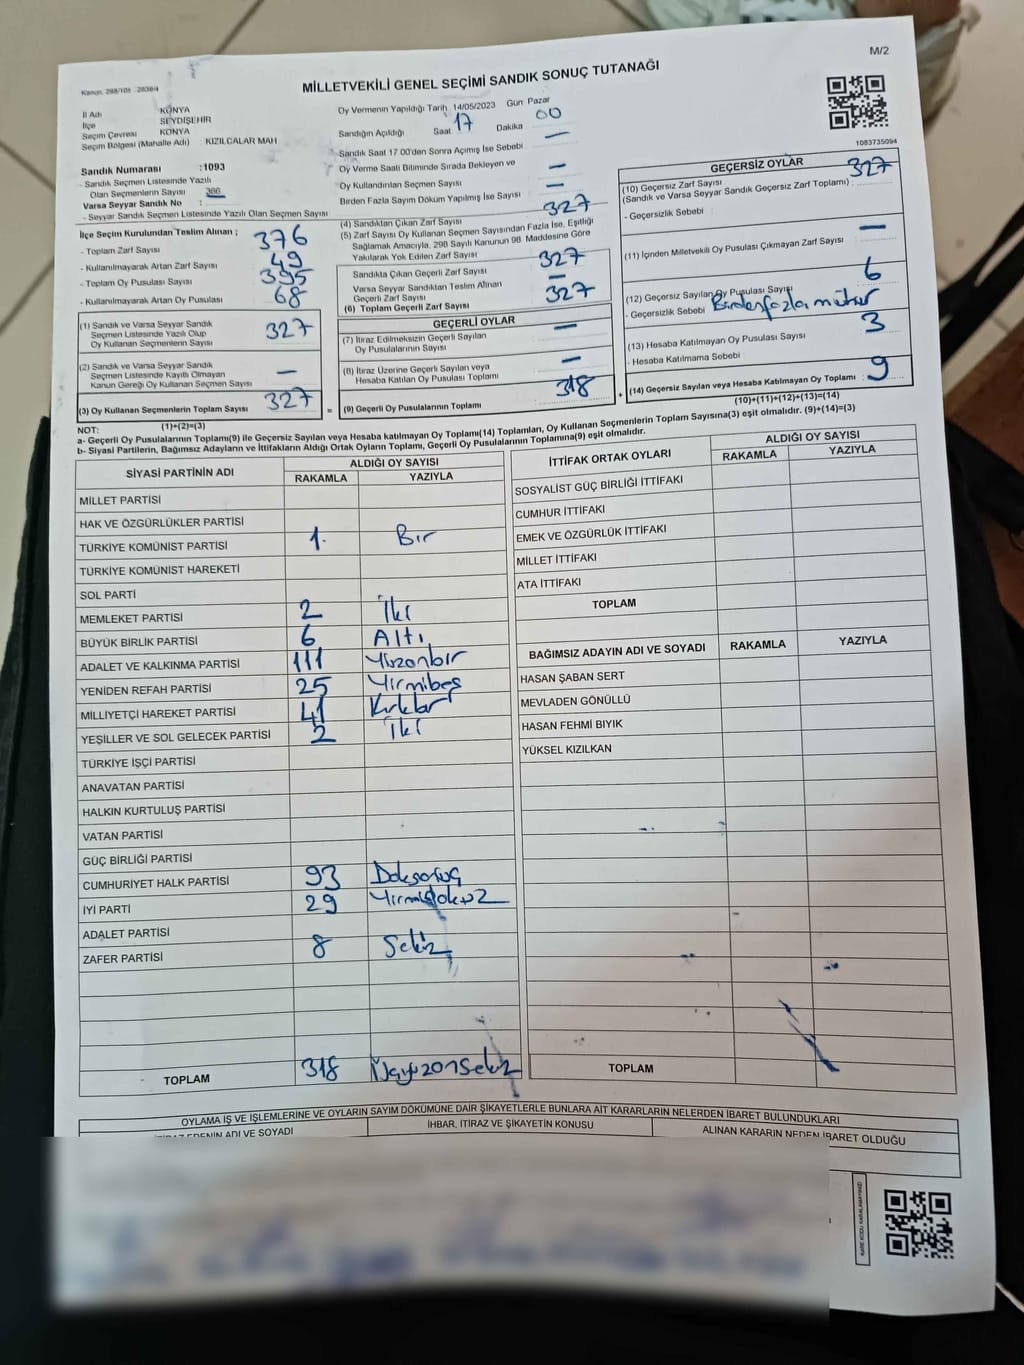 M/2
Kanun: 298/105 2839/4
MİLLETVEKİLİ GENEL SEÇİMİ SANDIK SONUÇ TUTANAĞI
İl Adı KONYA
İlçe SEYDİŞEHİR
Seçim Çevresi KONYA
Seçim Bölgesi (Mahalle Adı) KIZILCALAR MAH
Sandık Numarası :1093
- Sandık Seçmen Listesinde Yazılı
Olan Seçmenlerin Sayısı 366
Varsa Seyyar Sandık No :
- Seyyar Sandık Seçmen Listesinde Yazılı Olan Seçmen Sayısı
İlçe Seçim Kurulundan Teslim Alınan ;
- Toplam Zarf Sayısı 376
- Kullanılmayarak Artan Zarf Sayısı 49
- Toplam Oy Pusulası Sayısı 395
- Kullanılmayarak Artan Oy Pusulası 68
(1) Sandık ve Varsa Seyyar Sandık
Seçmen Listesinde Yazılı Olup
Oy Kullanan Seçmenlerin Sayısı 327
(2) Sandık ve Varsa Seyyar Sandık
Seçmen Listesinde Kayıtlı Olmayan
Kanun Gereği Oy Kullanan Seçmen Sayısı —
(3) Oy Kullanan Seçmenlerin Toplam Sayısı 327
(1)+(2)=(3)
Oy Vermenin Yapıldığı Tarih 14/05/2023 Gün Pazar
Sandığın Açıldığı Saat 17 Dakika 00
Sandık Saat 17.00'den Sonra Açımış İse Sebebi —
Oy Verme Saati Bitiminde Sırada Bekleyen ve
Oy Kullandırılan Seçmen Sayısı —
Birden Fazla Sayım Döküm Yapılmış İse Sayısı —
(4) Sandıktan Çıkan Zarf Sayısı 327
(5) Zarf Sayısı Oy Kullanan Seçmen Sayısından Fazla İse, Eşitliği
Sağlamak Amacıyla, 298 Sayılı Kanunun 98. Maddesine Göre
Yakılarak Yok Edilen Zarf Sayısı
Sandıkta Çıkan Geçerli Zarf Sayısı 327
Varsa Seyyar Sandıktan Teslim Alınan
Geçerli Zarf Sayısı —
(6) Toplam Geçerli Zarf Sayısı 327
GEÇERLİ OYLAR
(7) İtiraz Edilmeksizin Geçerli Sayılan
Oy Pusulalarının Sayısı —
(8) İtiraz Üzerine Geçerli Sayılan veya
Hesaba Katılan Oy Pusulası Toplamı —
= (9) Geçerli Oy Pusulalarının Toplamı 318
1083735094
GEÇERSİZ OYLAR
(10) Geçersiz Zarf Sayısı 327
(Sandık ve Varsa Seyyar Sandık Geçersiz Zarf Toplamı) :
- Geçersizlik Sebebi
(11) İçinden Milletvekili Oy Pusulası Çıkmayan Zarf Sayısı —
(12) Geçersiz Sayılan Oy Pusulası Sayısı 6
- Geçersizlik Sebebi Birden fazla mühür
(13) Hesaba Katılmayan Oy Pusulası Sayısı 3
- Hesaba Katılmama Sebebi
+ (14) Geçersiz Sayılan veya Hesaba Katılmayan Oy Toplamı : 9
(10)+(11)+(12)+(13)=(14)
NOT:
a- Geçerli Oy Pusulalarının Toplamı(9) ile Geçersiz Sayılan veya Hesaba katılmayan Oy Toplamı(14) Toplamları, Oy Kullanan Seçmenlerin Toplam Sayısına(3) eşit olmalıdır. (9)+(14)=(3)
b- Siyasi Partilerin, Bağımsız Adayların ve İttifakların Aldığı Ortak Oyların Toplamı, Geçerli Oy Pusulalarının Toplamına(9) eşit olmalıdır.
SİYASİ PARTİNİN ADI ALDIĞI OY SAYISI
RAKAMLA YAZIYLA
MİLLET PARTİSİ
HAK VE ÖZGÜRLÜKLER PARTİSİ
TÜRKİYE KOMÜNİST PARTİSİ 1. Bir
TÜRKİYE KOMÜNİST HAREKETİ
SOL PARTİ
MEMLEKET PARTİSİ 2 İki
BÜYÜK BİRLİK PARTİSİ 6 Altı
ADALET VE KALKINMA PARTİSİ 111 Yüzonbir
YENİDEN REFAH PARTİSİ 25 Yirmibeş
MİLLİYETÇİ HAREKET PARTİSİ 41 Kırkbir
YEŞİLLER VE SOL GELECEK PARTİSİ 2 İki
TÜRKİYE İŞÇİ PARTİSİ
ANAVATAN PARTİSİ
HALKIN KURTULUŞ PARTİSİ
VATAN PARTİSİ
GÜÇ BİRLİĞİ PARTİSİ
CUMHURİYET HALK PARTİSİ 93 Doksanüç
İYİ PARTİ 29 Yirmidokuz
ADALET PARTİSİ
ZAFER PARTİSİ 8 Sekiz
TOPLAM 318 Üçyüzonsekiz
İTTİFAK ORTAK OYLARI ALDIĞI OY SAYISI
RAKAMLA YAZIYLA
SOSYALİST GÜÇ BİRLİĞİ İTTİFAKI
CUMHUR İTTİFAKI
EMEK VE ÖZGÜRLÜK İTTİFAKI
MİLLET İTTİFAKI
ATA İTTİFAKI
TOPLAM
BAĞIMSIZ ADAYIN ADI VE SOYADI RAKAMLA YAZIYLA
HASAN ŞABAN SERT
MEVLADEN GÖNÜLLÜ
HASAN FEHMİ BIYIK
YÜKSEL KIZILKAN
TOPLAM
OYLAMA İŞ VE İŞLEMLERİNE VE OYLARIN SAYIM DÖKÜMÜNE DAİR ŞİKAYETLERLE BUNLARA AİT KARARLARIN NELERDEN İBARET BULUNDUKLARI
İTİRAZ EDENİN ADI VE SOYADI İHBAR, İTİRAZ VE ŞİKAYETİN KONUSU ALINAN KARARIN NEDEN İBARET OLDUĞU
KARE KODU KARALAMAYINIZ!